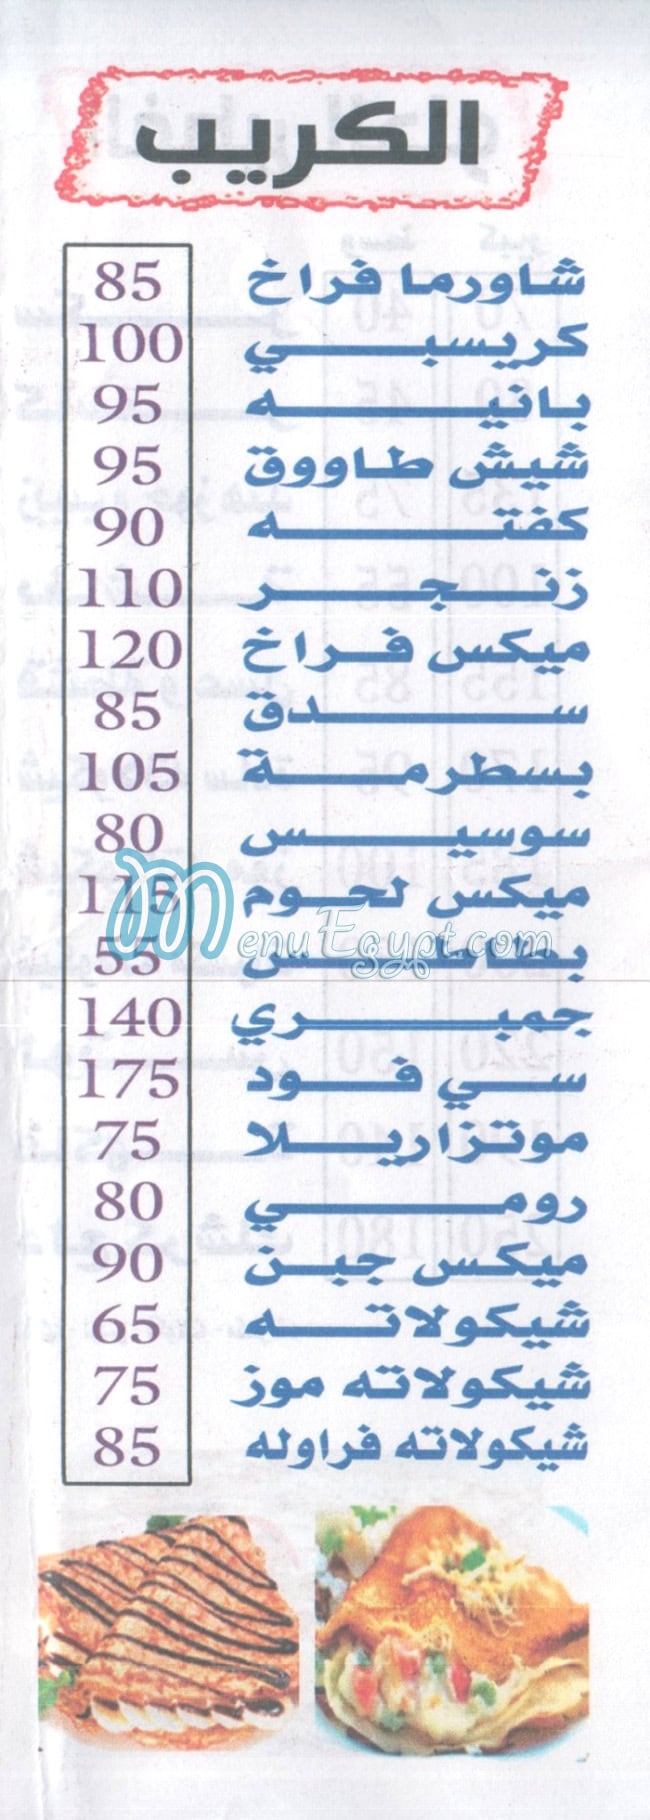 الكريب
شاورما فراخ 85
كريسبي 100
بانيه 95
شيش طاووق 95
كفته 90
زنجر 110
ميكس فراخ 120
سدق 85
بسطرمة 105
سوسيس 80
ميكس لحوم 115
بطاطس 55
MenuEgypt.com
جمبري 140
سي فود 175
موتزاريلا 75
رومي 80
ميكس جبن 90
شيكولاته 65
شيكولاته موز 75
شيكولاته فراوله 85